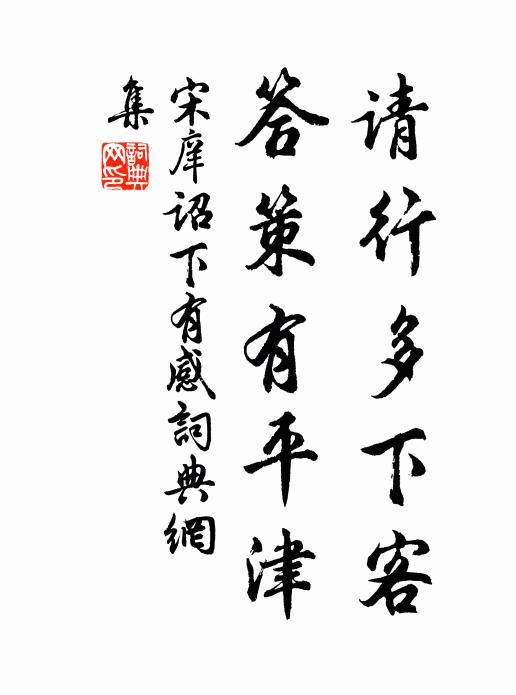 请行多下客
答策有平津
宋庠诏下有感詞典網
集
詞典
网印